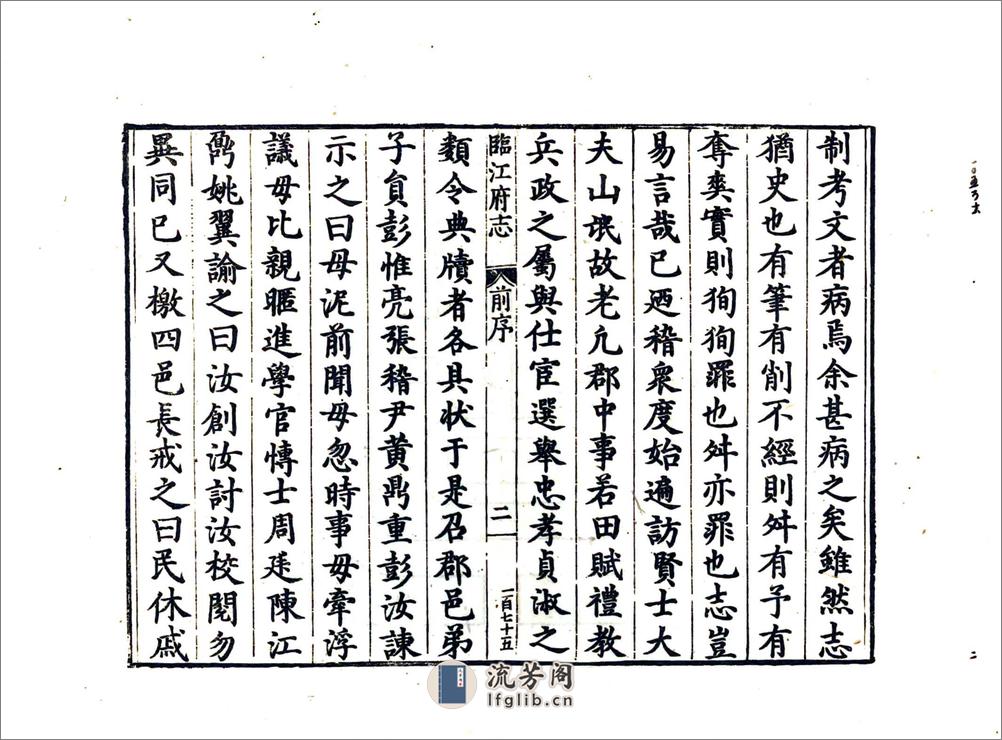 制考文者病焉余甚病之矣雖然志
猶史也有筆有削不經則舛有予有
奪爽實則徇徇罪也舛亦罪也志豈
易言哉已迺稽衆度始遍訪賢士大
夫山氓故老凢郡中事若田賦禮教
兵政之屬與仕宦選舉忠孝貞淑之
臨江府志 前序 二 一百七十五
類令典牘者各具状于是召郡邑弟
子貟彭惟亮張稽尹黄鼎重彭汝諫
示之曰毋泥前聞毋忽時事毋牽浮
議毋比親暱進學官博士周廷陳江
鹍姚翼諭之曰汝創汝討汝校閱勿
異同已又檄四邑長戒之曰民休戚
二
流芳阁
lfglib.cn